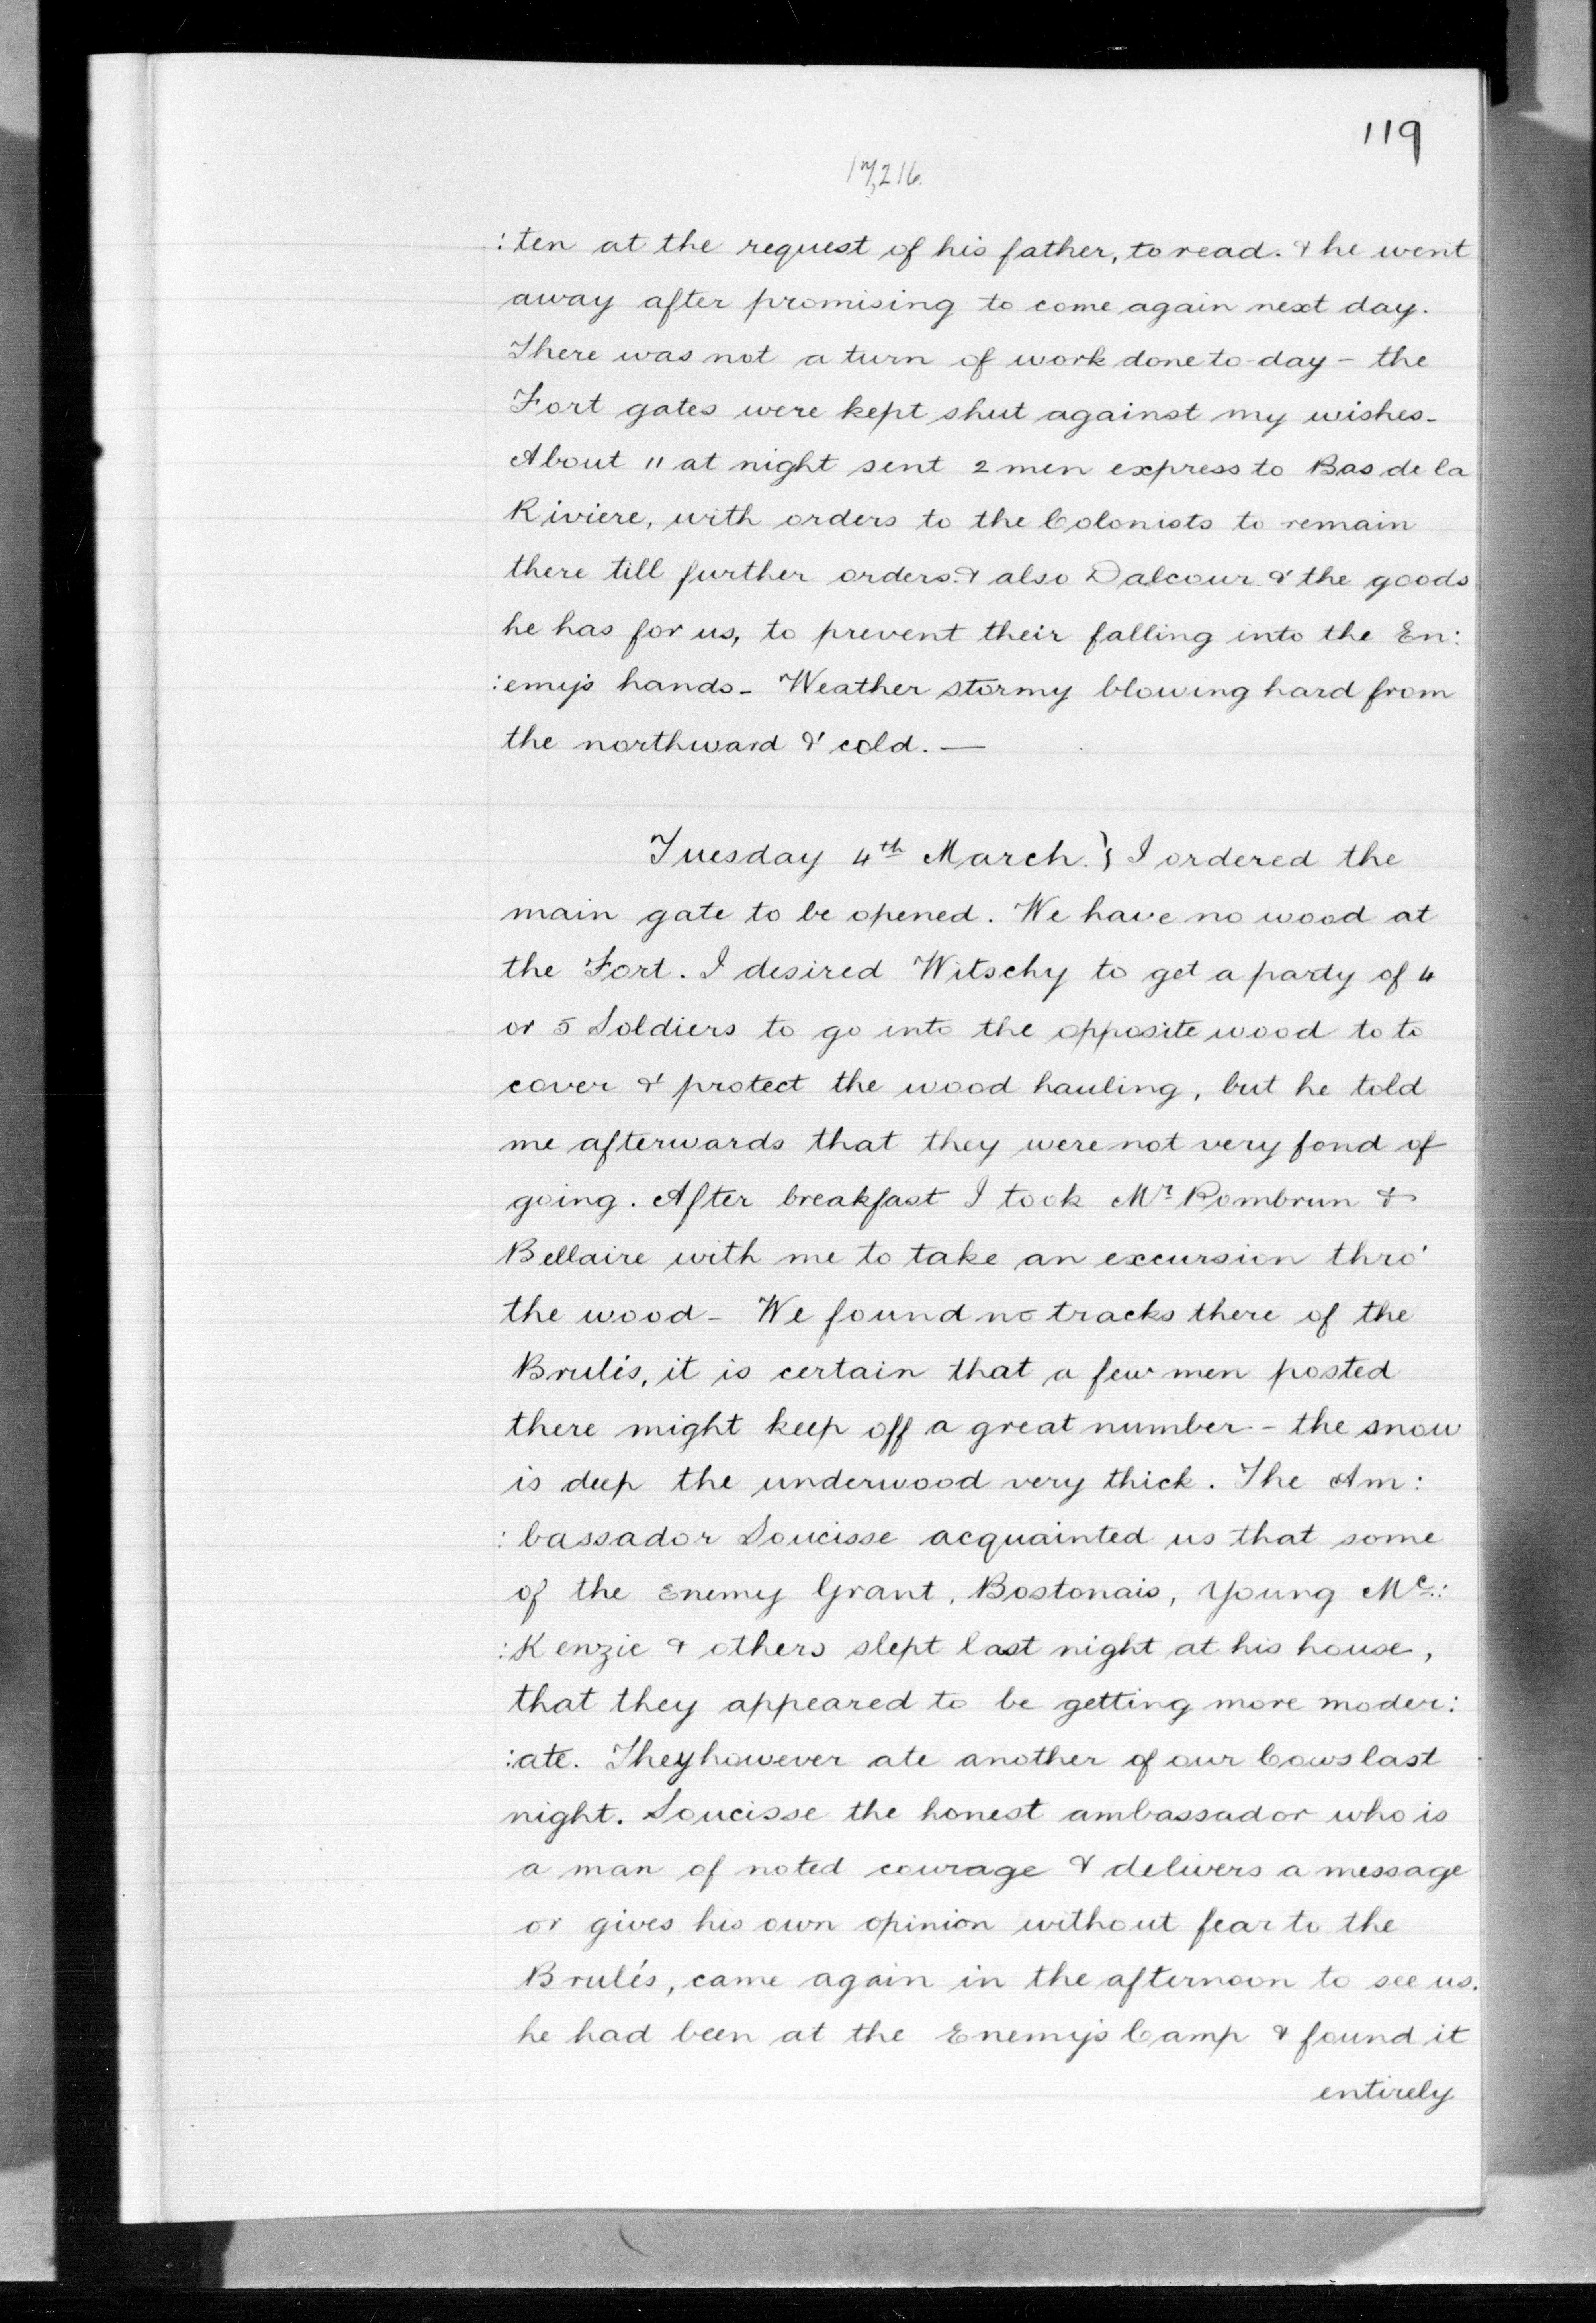 119
17,216.
: ten at the request of his father, to read. & he went
away after promising to come again next day.
There was not a turn of work done to-day – the
Fort gates were kept shut against my wishes –
About 11 at night sent 2 men express to Bas de la
Riviere, with orders to the Colonists to remain
there till further orders. & also Dalcour & the goods
he has for us, to prevent their falling into the En:
:emy's hands – Weather stormy blowing hard from
the northward & cold. —
Tuesday 4th March.} I ordered the
main gate to be opened. We have no wood at
the Fort. I desired Witschy to get a party of 4
or 5 Soldiers to go into the opposite wood to to
cover & protect the wood hauling, but he told
me afterwards that they were not very fond of
going. After breakfast I took Mr Rombrun &
Bellaire with me to take an excursion thro'
the wood – We found no tracks there of the
Brulés, it is certain that a few men posted
there might keep off a great number – the snow
is deep the underwood very thick. The Am:
: bassador Soucisse acquainted us that some
of the Enemy Grant, Bostonais, Young Mc.:
:Kenzie & others slept last night at his house,
that they appeared to be getting more moder:
:ate. They however ate another of our Cows last
night. Soucisse the honest ambassador who is
a man of noted courage & delivers a message
or gives his own opinion without fear to the
Brulés, came again in the afternoon to see us.
he had been at the Enemy's Camp & found it
entirely